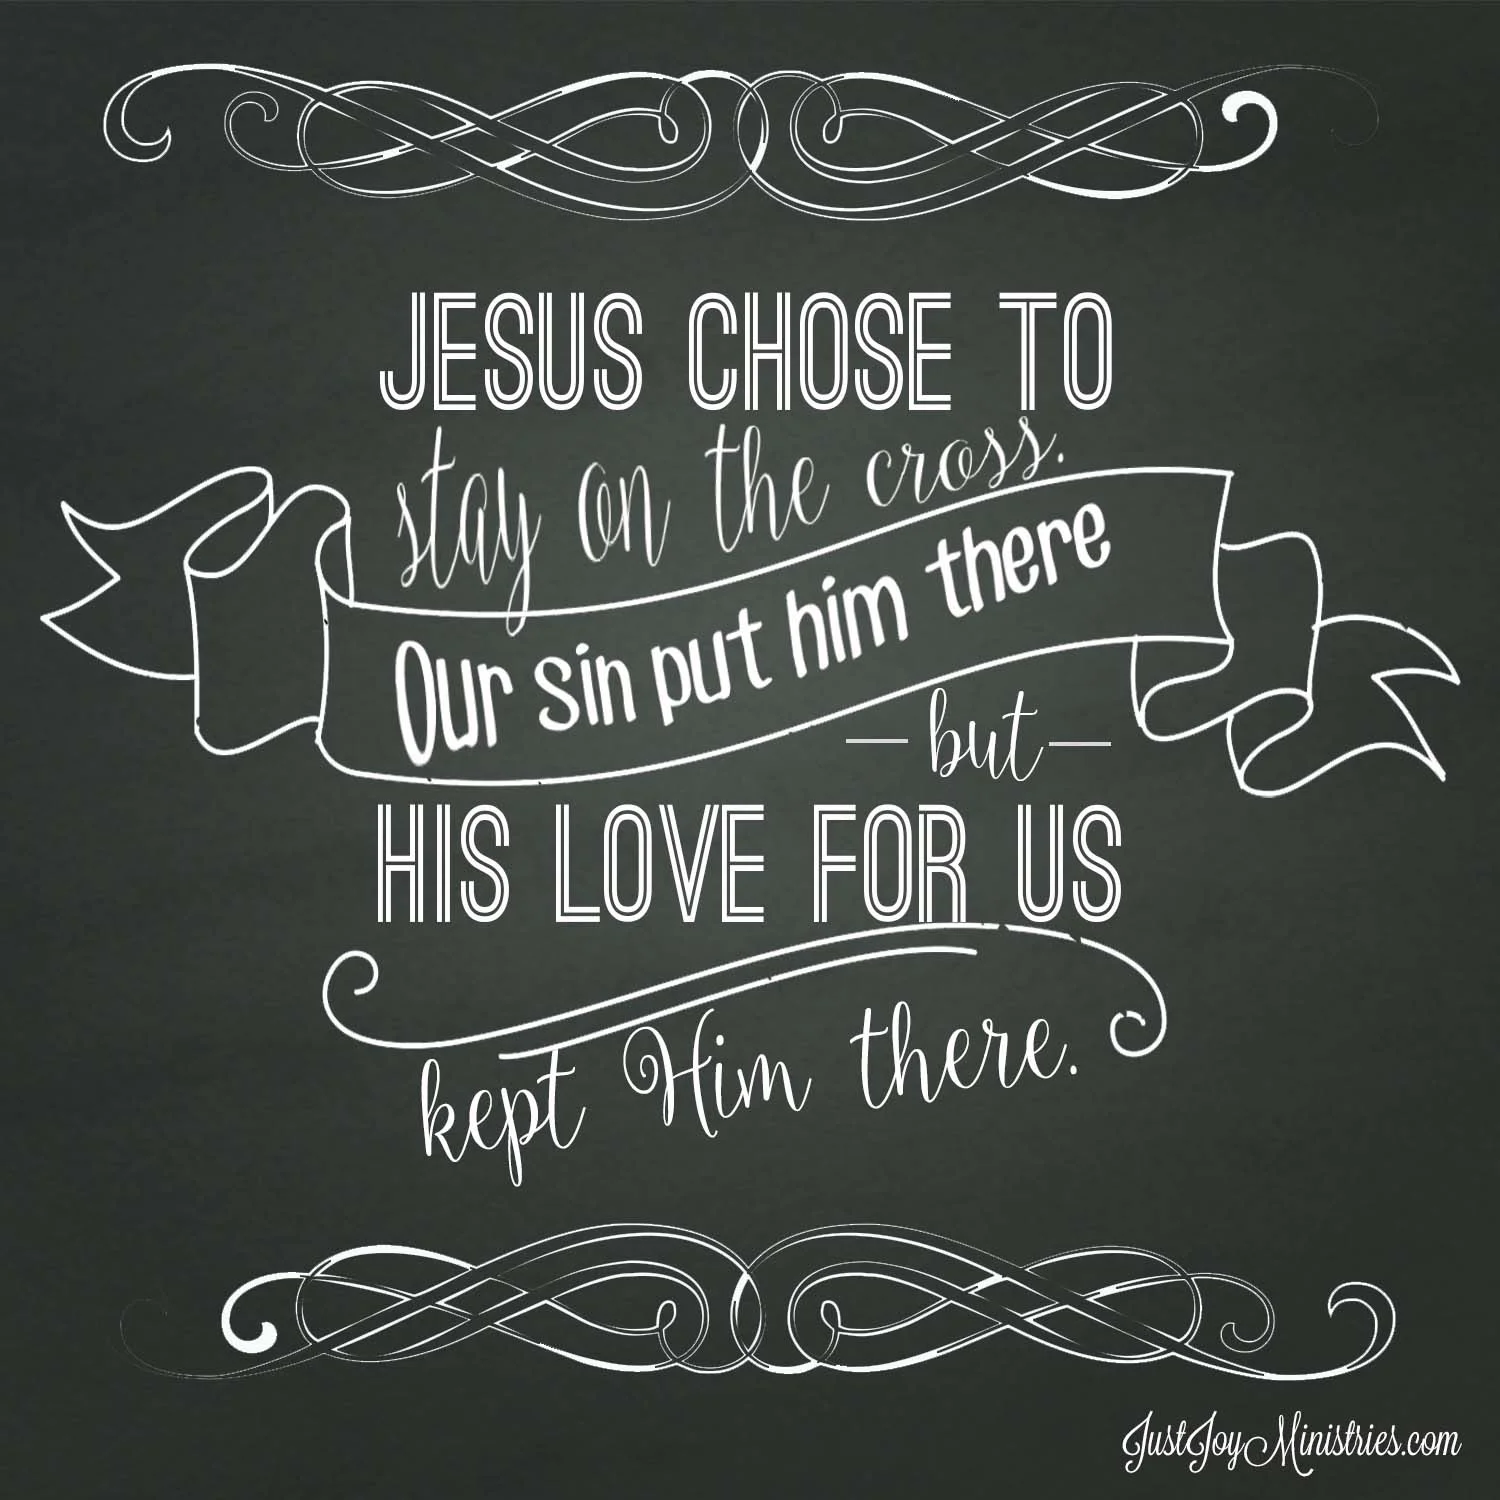 JESUS CHOSE TO
stay on the cross.
Our sin put him there
— but —
HIS LOVE FOR US
kept Him there.
JustJoyMinistries.com